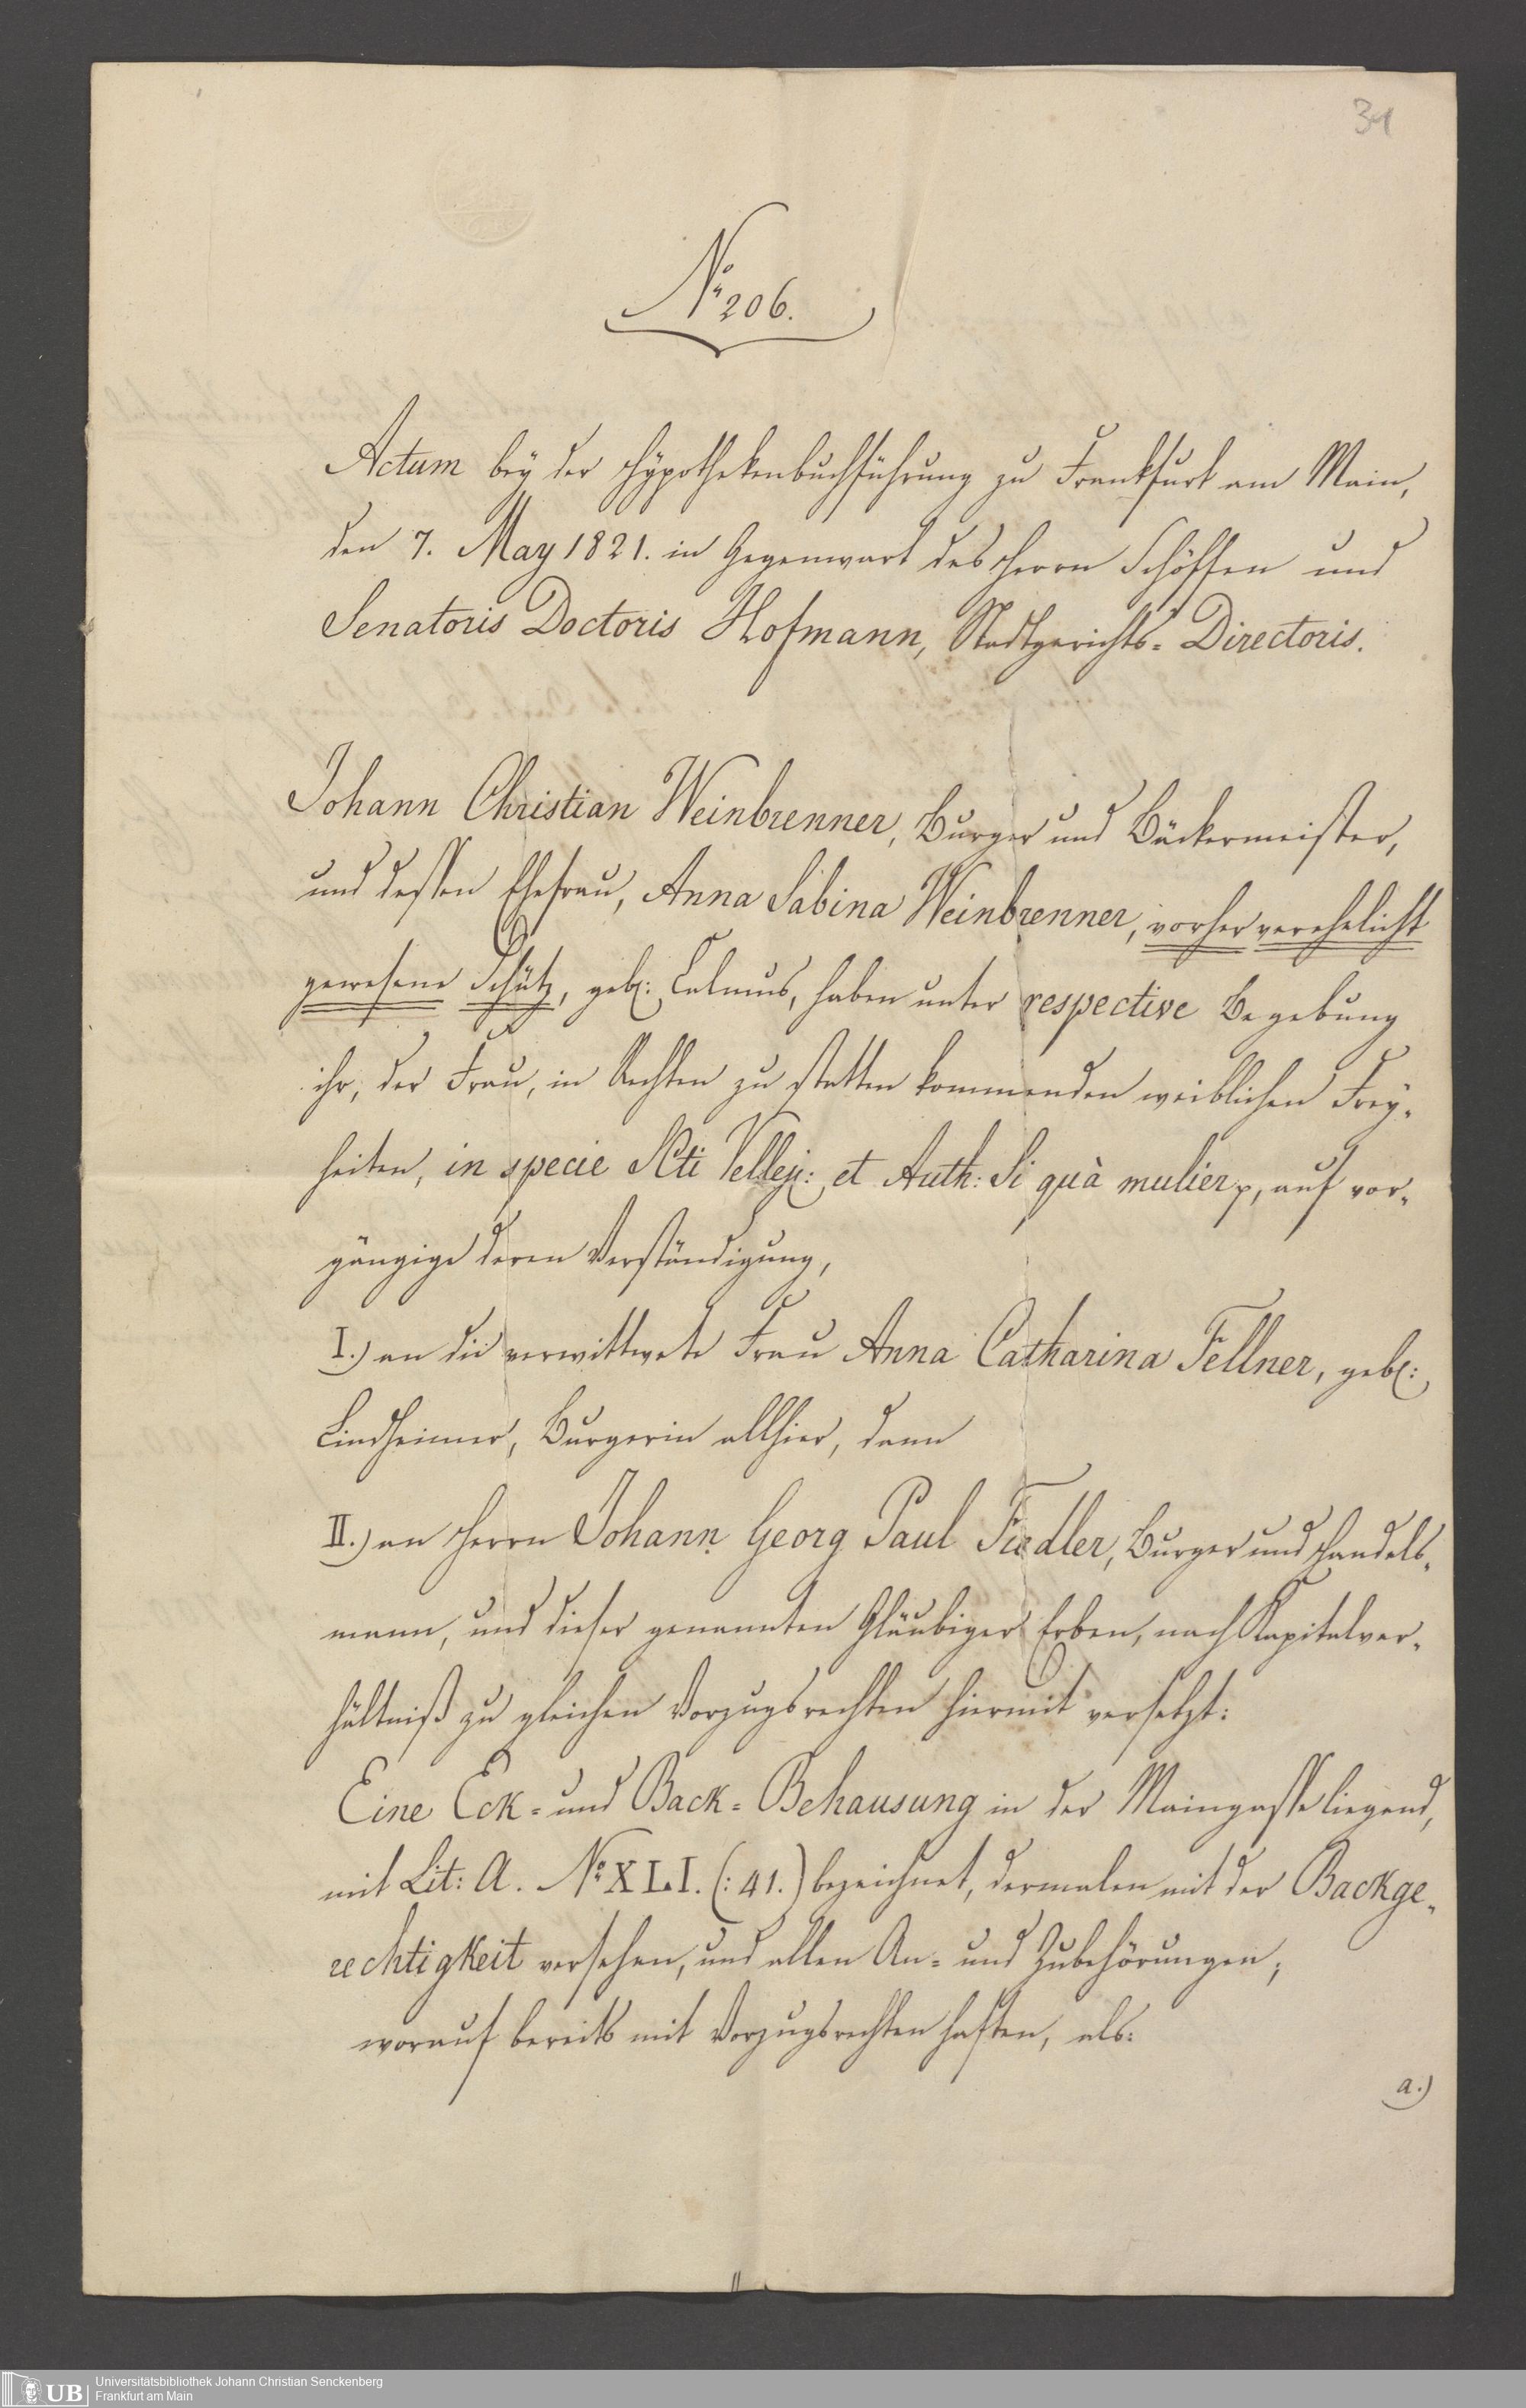 34
No. 206.
Actum bey der Hypothekenbuchführung zu Frankfurt am Main,
den 7. May 1821. in Gegenwart des Herrn Schöffen und
Senatoris Doctoris Hofmann, Stadtgerichts= Directoris.
Johann Christian Weinbrenner, Burger und Bäckermeister,
und dessen Ehefrau, Anna Sabina Weinbrenner, vorher verehelicht
gewesene Schütz, geb: Calmus, haben unter respective Begebung
ihr, der Frau, in Rechten zu statten kommenden weiblichen Frey=
heiten, in specie SCti Vellej: et Auth: Si quà mulier p, auf vor=
gängige deren Verständigung,
I.) an die verwittwete Frau Anna Catharina Fellner, geb:
Lindheimer, Burgerin allhier, dann
II.) an Herrn Johann Georg Paul Fiedler, Burger und Handels=
mann, und dieser genannten Gläubiger Erben, nach Kapitalver=
hältniß zu gleichen Vorzugsrechten hiermit versetzt:
Eine Eck= und Back= Behausung in der Maingasse liegend,
mit Lit: A. No. XLI. (: 41.) bezeichnet, dermalen mit der Backge=
rechtigkeit versehen, und allen An= und Zubehörungen;
worauf bereits mit Vorzugsrechten haften, als:
a.)
UB
Universitätsbibliothek Johann Christian Senckenberg
Frankfurt am Main